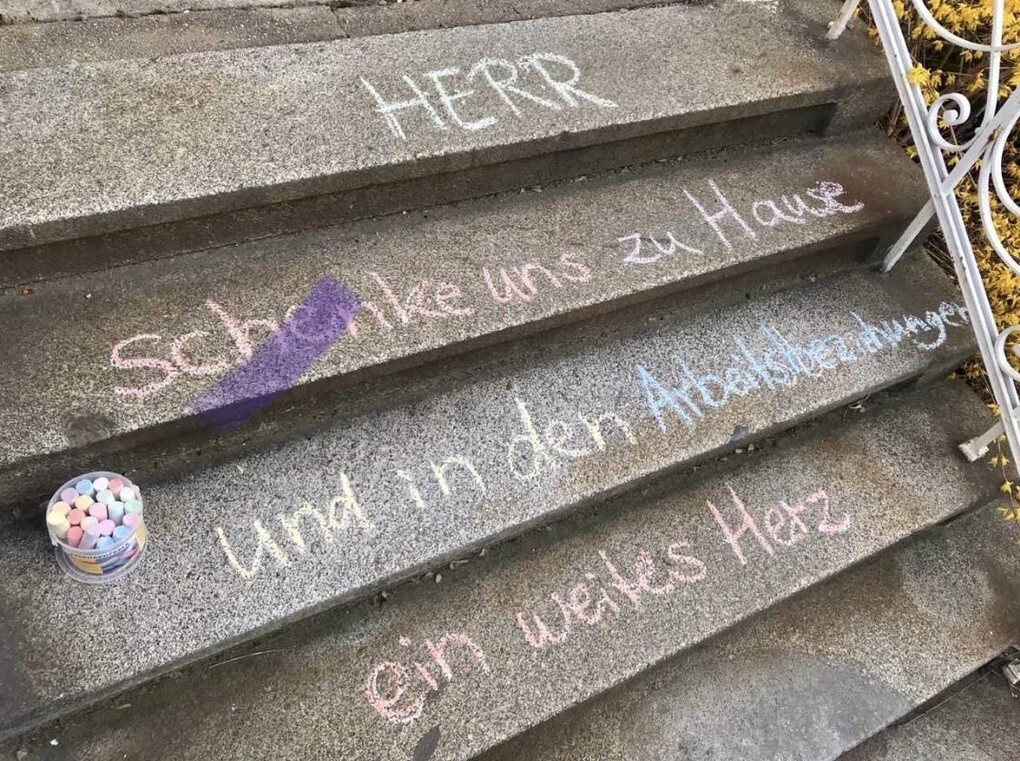 HERR
Schenke uns zu Hause
und in den Arbeitsbeziehungen
ein weites Herz